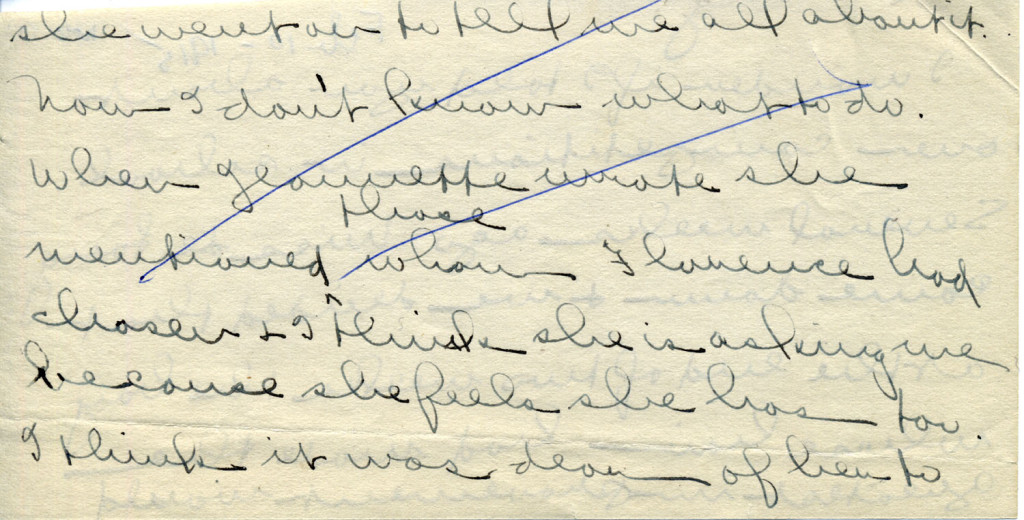 she went on to tell me all about it.
Now I don't know what to do.
When Jeannette wrote she
those
mentioned ^ whom Florence had
chosen & I think she is asking me
because she feels she has to.
I think it was dear of her to